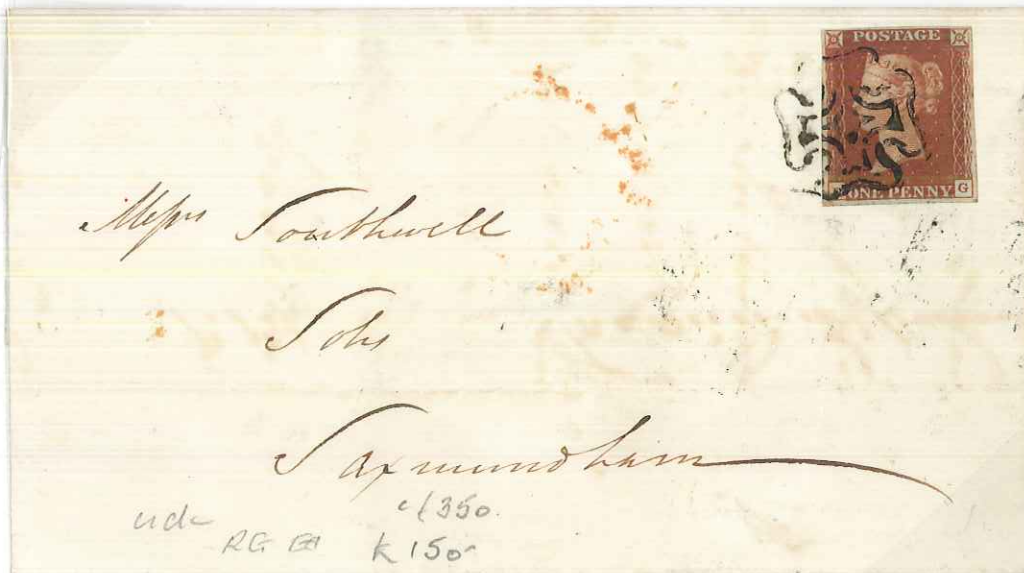 POSTAGE
ONE PENNY G
Messrs Southwell
Sols
Saxmundham
c/350.
RG k 150